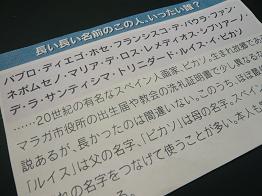 長い長い名前のこの人、いったい誰？
パブロ・ディエゴ・ホセ・フランシスコ・デ・パウラ・ファン・
ネポムセノ・マリア・デ・ロス・レメディオス・シプリアーノ・
デ・ラ・サンティシマ・トリニダード・ルイス・イ・ピカソ
……20世紀の有名なスペイン人画家、ピカソ。生まれ故郷であ
マラガ市役所の出生届や教会の洗礼証明書で少し異なる
説あるが、長かったのは間違いない。このうち、ほぼ
「ルイス」は父の名字、「ピカソ」は母の名字。スペイン
の名字をつなげて使うことが多い。本人も